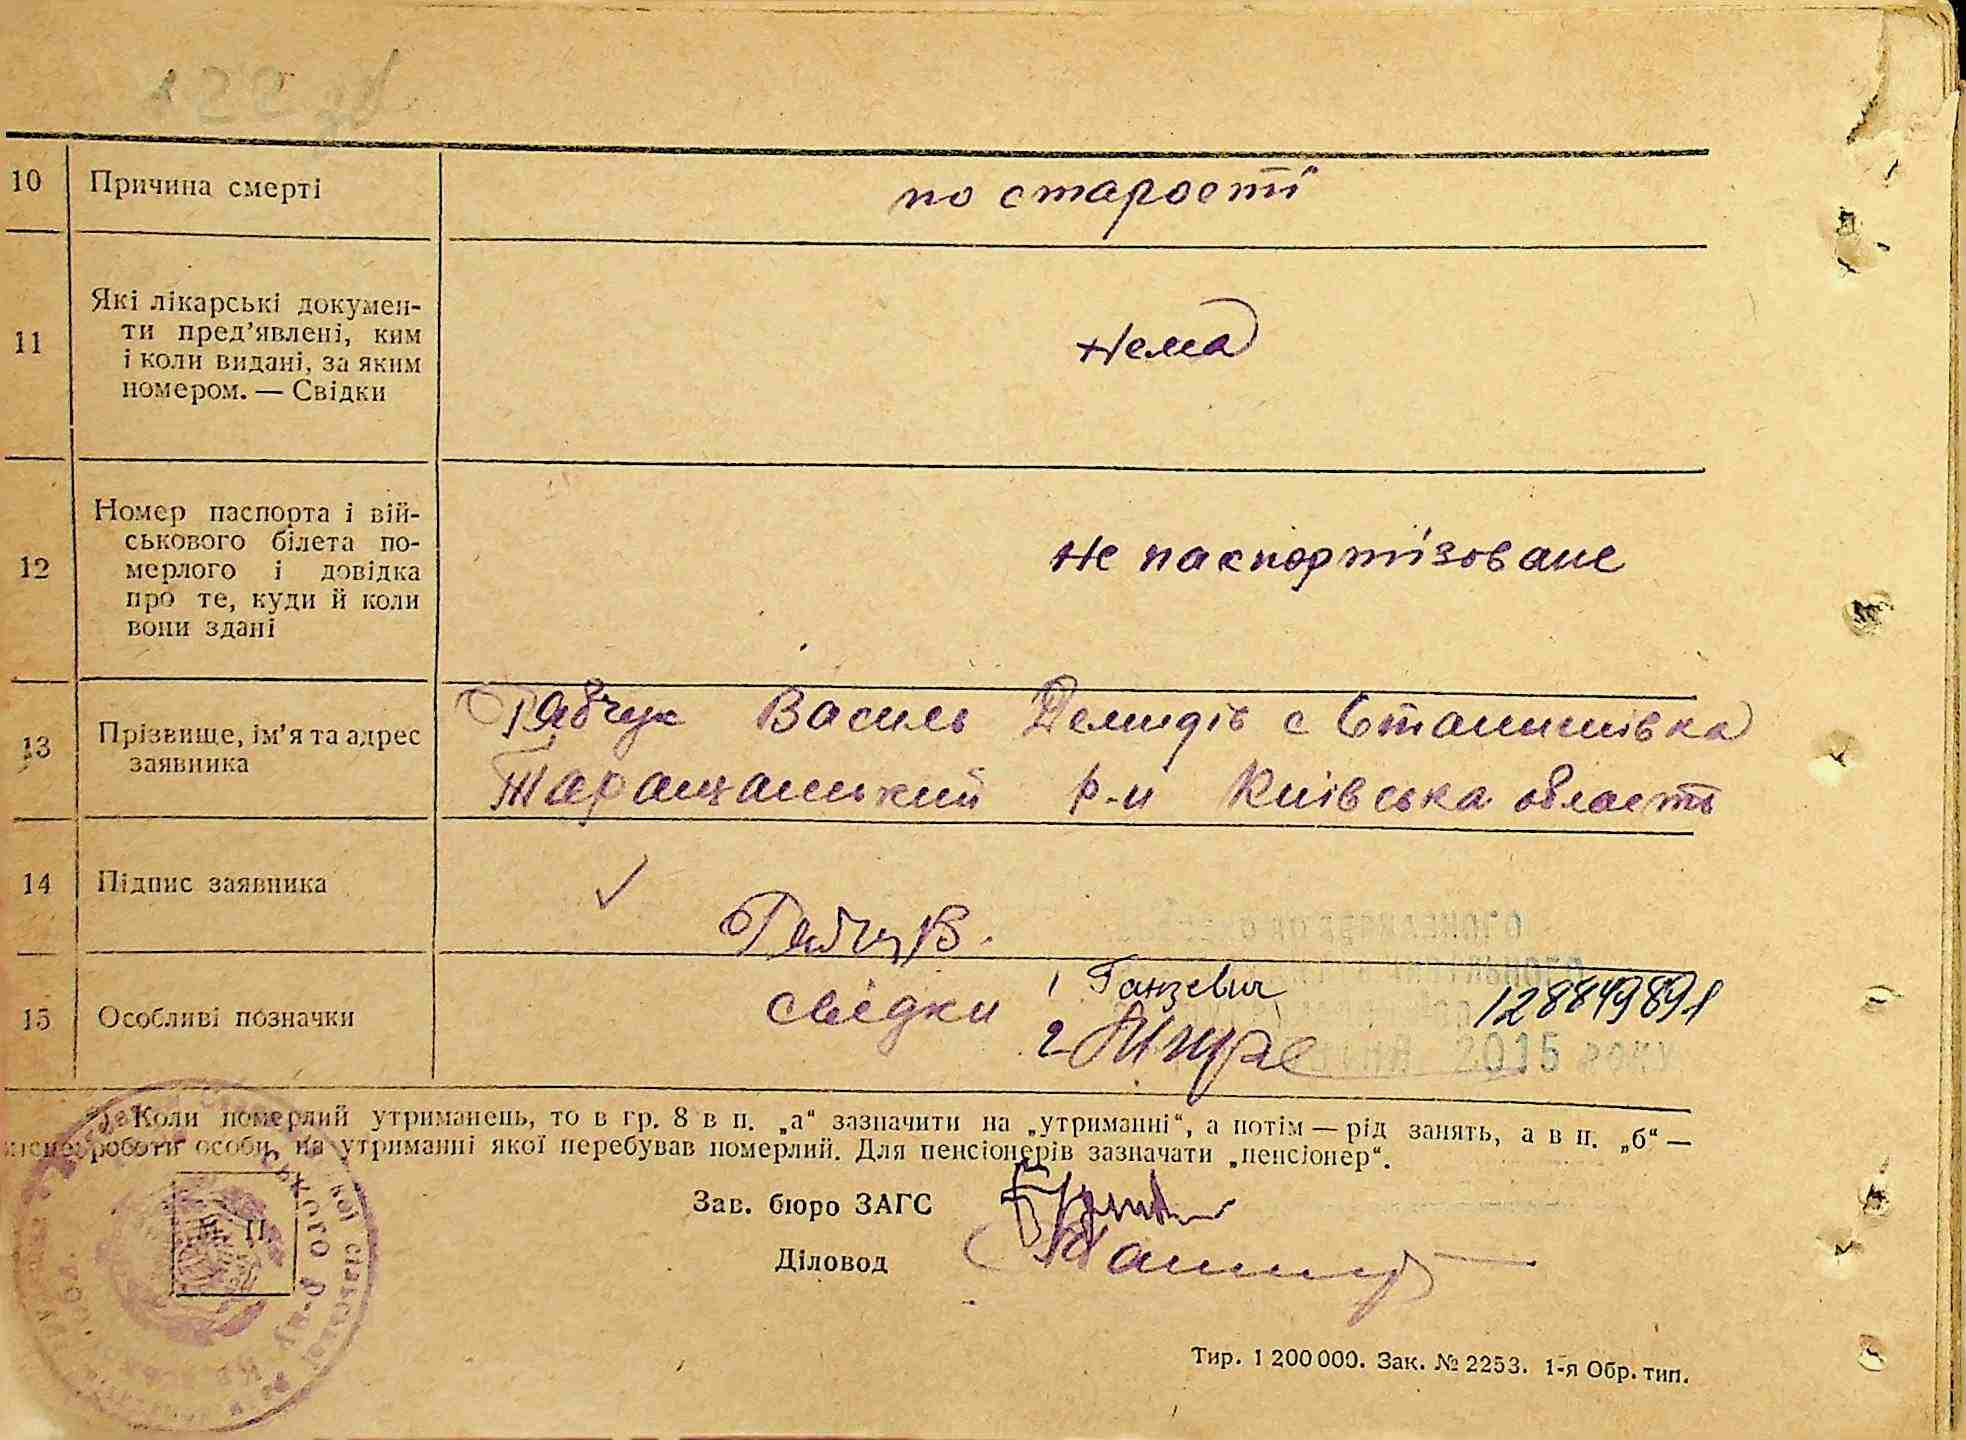 10 Причина смерті по старості
11 Які лікарські докумен-
ти пред'явлені, ким
і коли видані, за яким
номером. — Свідки
нема
12 Номер паспорта і вій-
ськового білета по-
мерлого і довідка
про те, куди й коли
вони здані
не паспортізоване
13 Прізвище, ім'я та адрес
заявника
Рабчук Василь Демидів с Станишівка
Таращанський р-н Київська область
14 Підпис заявника
15 Особливі позначки
свідки 1 Ганзевич
2
128849891
2015 року
Коли померлий утриманець, то в гр. 8 в п. „а“ зазначити на „утриманні“, а потім — рід занять, а в п. „б“ —
місце роботи особи, на утриманні якої перебував померлий. Для пенсіонерів зазначати „пенсіонер“.
Зав. бюро ЗАГС
Діловод
Тир. 1 200 000. Зак. № 2253. 1-я Обр. тип.